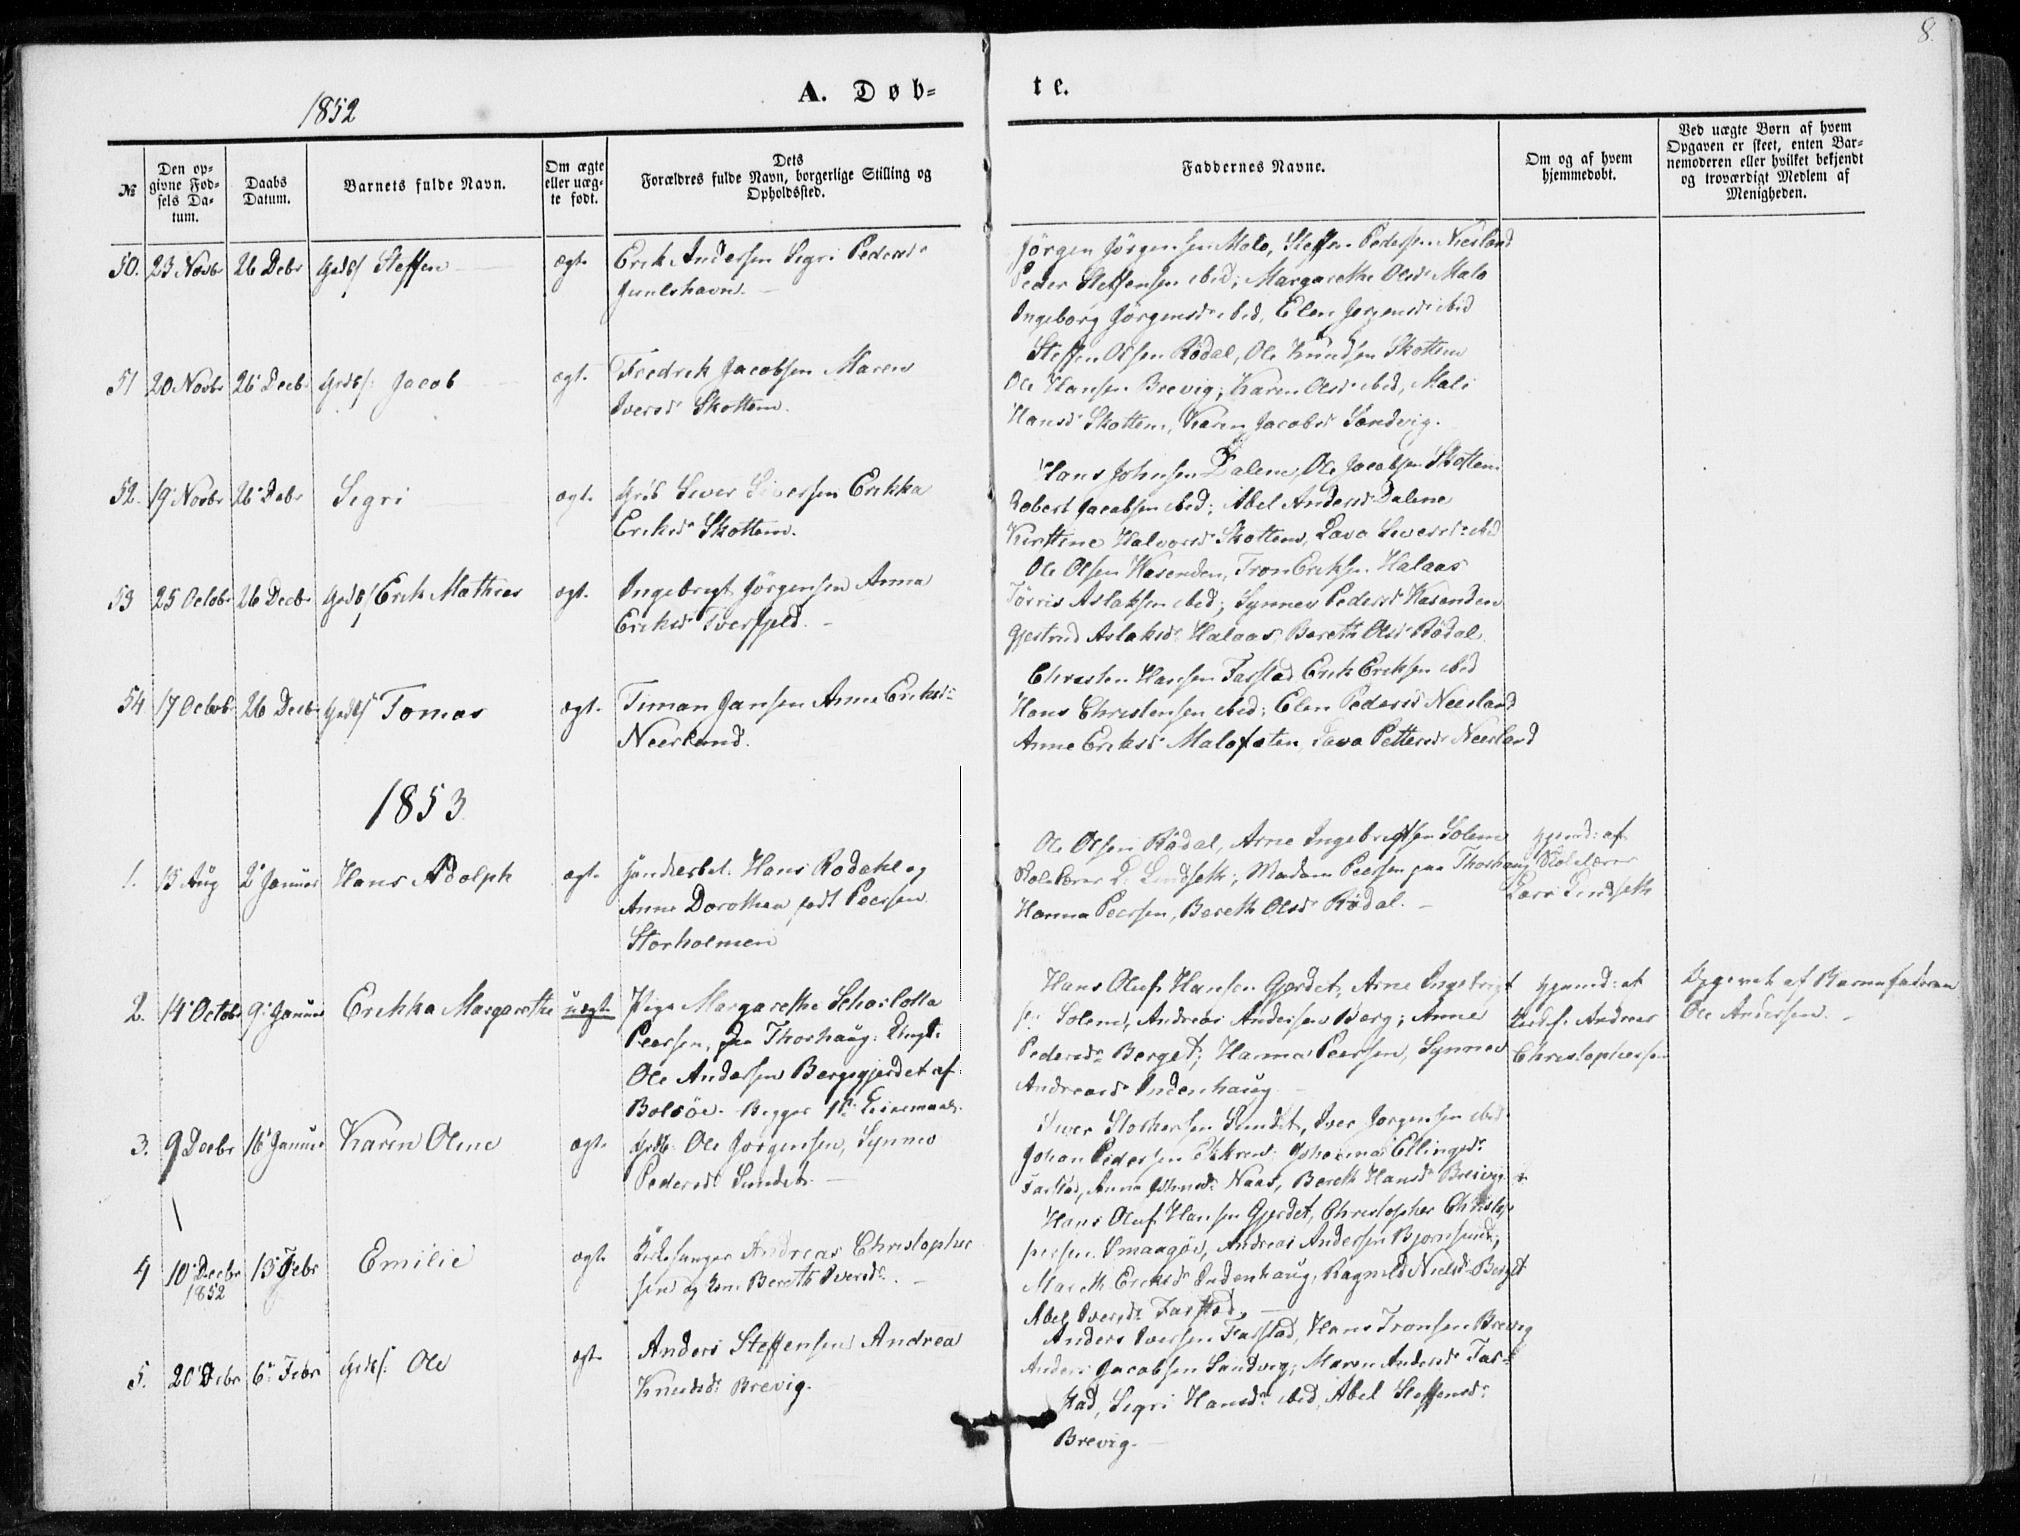 8.
1852
A. Døb-
te.
№
Den op-
givne Fød-
sels Da-
tum.
Daabs
Datum.
Barnets fulde Navn.
Om ægte
eller uæg-
te født.
Dets
Forældres fulde Navn, borgerlige Stilling og
Opholdssted.
Faddernes Navne.
Om og af hvem
hjemmedøbt.
Ved uægte Børn af hvem
Opgaven er skeet, enten Bar-
nemoderen eller hvilket bekjendt
og troværdigt Medlem af
Menigheden.
50. 23 Novbr 26 Debr Steffen ægt.
Erik Andersen Segri Pedersd.
Jörgen Jörgensen Malo, Steffen Pedersen Neerland
Peder Steffensen ibid; Margarethe Olsd. Malo
Ingeborg Jörgensd. ibid, Elen Jörgensd. ibid
51 20 Novbr 26 Decb. Jacob ægt.
Fredrik Jacobsen Maren
Iversd. Skottem.
Steffen Olsen Rödal, Ole Knudsen Skottem
Ole Hansen Brevig; Karen Olsd. ibid, Mali
Hansd. Skottem, Karen Jacobsd. Sandvig.
52. 19 Novbr 26 Debr Segri ægt.
Sever Seversen Erikka
Eriksd. Skottem.
Hans Johnsen Dalene, Ole Jacobsen Skottem
Robert Jacobsen ibid; Abel Andersd. Dalene
Kirstine Halvorsd. Skottem, Lava Seversd. ibid
53 25 Octobr 26 Decbr Erik Mathias ægt.
Ingebregt Jörgensen Anna
Eriksd. Tverfjeld.
Ole Olsen Hasenden, Tron Eriksen Halaas
Törris Aslaksen ibid; Synnev Pedersd. Hasenden
Gjertrud Aslaksd. Halaas Bereth Olsd. Rödal.
54 17 Octobr 26 Decbr Tomas ægt.
Timan Jansen Anne Eriksd.
Neerland.
Christen Hansen Farstad Erik Eriksen ibid
Hans Christensen ibid; Elen Pedersd. Neerland
Anne Eriksd. Malofæten, Lava Pettersd. Neerland
1853
1. 15 Aug 2 Januar Hans Adolph ægt.
Handlesbet. Hans Rodahl og
Anne Dorothea født Peersen
Storholmen
Ole Olsen Rödal, Arne Ingebrigtsen Solem
Skolelærer L. Lindseth; Madam Peersen paa Thorhaug
Hanna Peersen, Bereth Olsd. Rödal.
Hjemd: af
Skolelærer
Lars Lindseth
2. 14 Octobr 9 Januar Erikka Margarethe uægt.
Pige Margarethe Scharlotta
Peersen, paa Thorhaug: Ungk.
Ole Andersen Bergsgjerdet af
Bolsöe. Begges 1ste Leiermaal.
Hans Oluf Hansen Gjerdet, Arne Ingebrigt
s. Solem, Andreas Andersen Berg; Anne
Pedersd. Berget; Hanna Peersen, Synnev
Andreasd. Indenhaug.
Hjemd: af
Andreas
Christophersen
Opgivet af Barnefaderen
Ole Andersen.
3. 9 Decbr 16 Januar Karen Oline ægt.
Ole Jörgensen, Synnev
Pedersd. Sundet.
Iver Storkersen Sundet, Iver Jörgensen ibid
Johan Pedersen Ekkren: Johanna Ellingsd.
Farstad, Anne Johnsd. Naas, Bereth Hansd. Brevig.
4 10 Decbr 1852 13 Febr Emilie ægt.
Kirkesanger Andreas Christopher
sen og Kone Bereth Iversd.
Hans Oluf Hansen Gjerdet, Christopher Christop
hersen Smaagøe, Andreas Andersen Bjornsund;
Mareth Eriksd. Indenhaug, Ragnild Nielsd. Berget
Abel Iversd. Farstad.
5. 20 Debr 6 Febr Ole ægt.
Anders Steffensen Andrea
Knudsd. Brevig.
Anders Iversen Farstad, Hans Tronsen Brevig
Anders Jacobsen Sandvig; Maren Andersd. Far-
stad, Segri Hansd. ibid, Abel Steffensd.
Brevig.